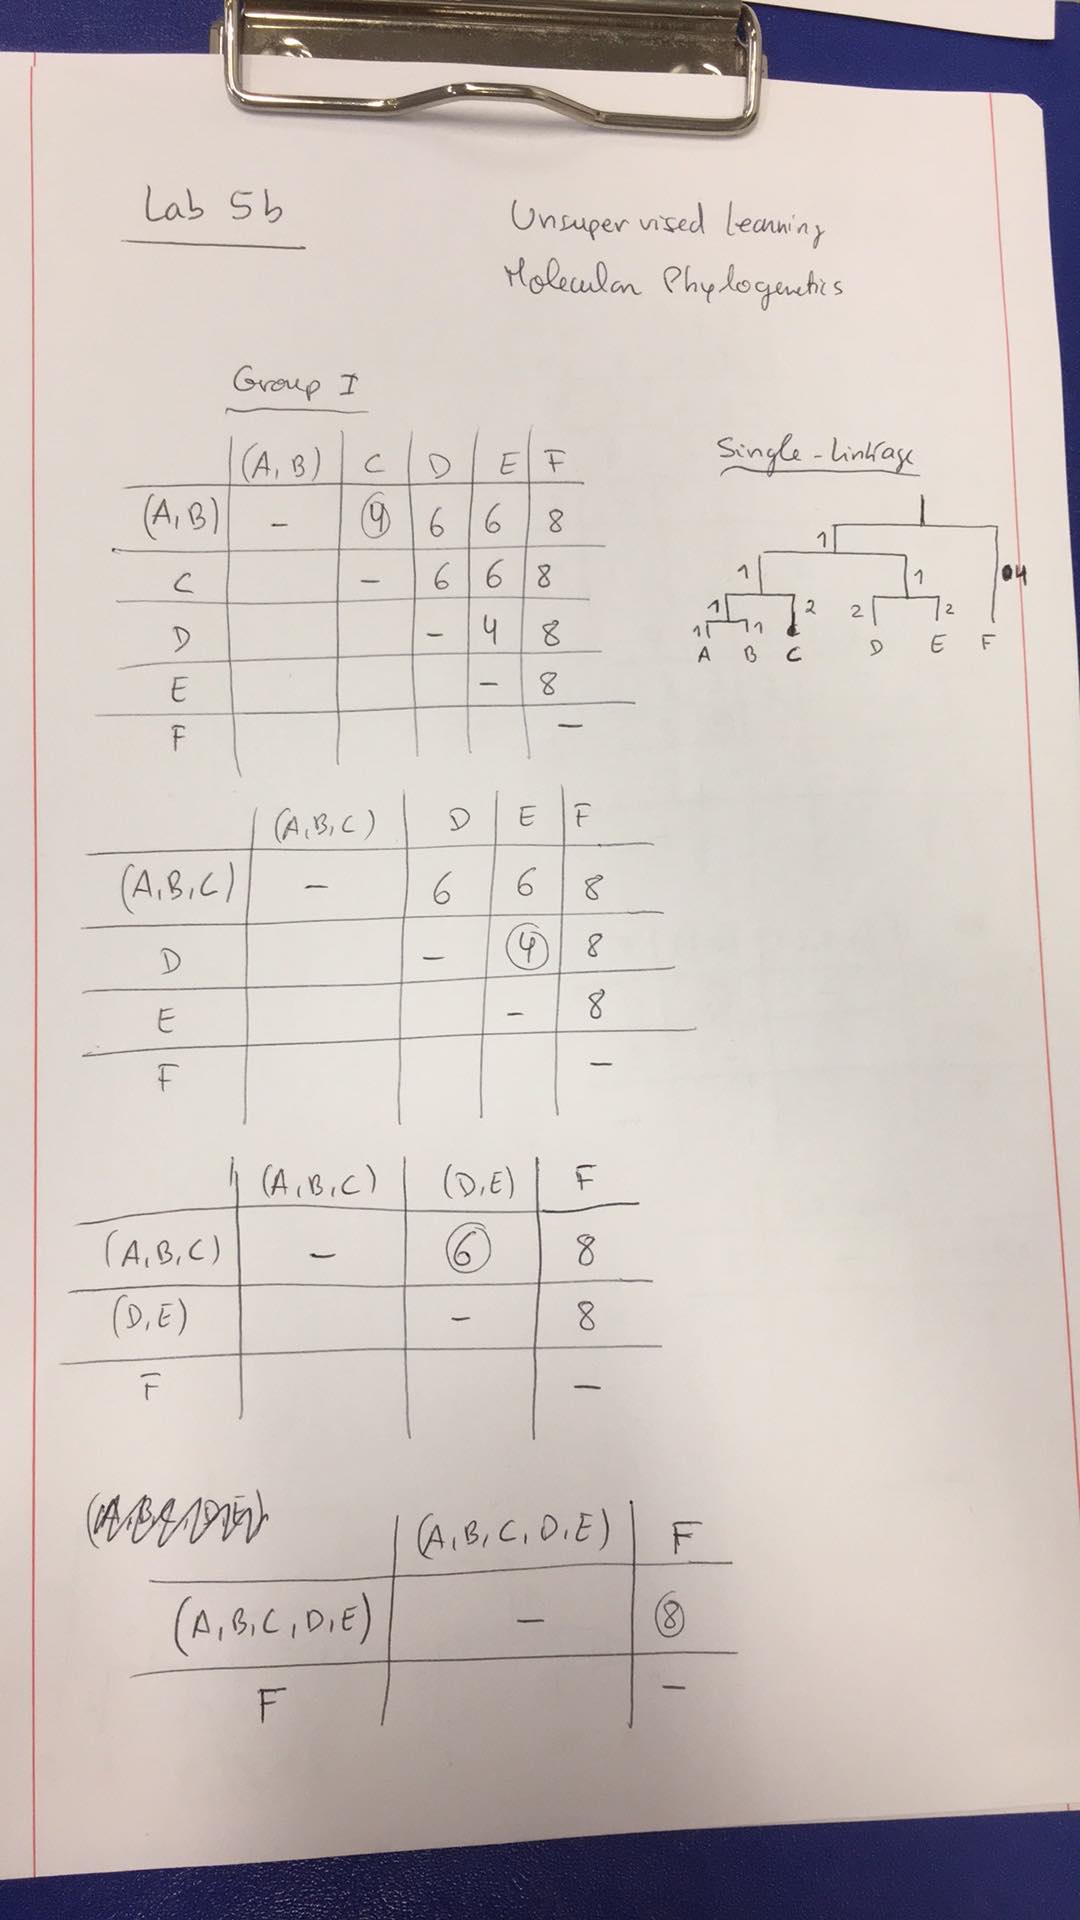 Lab 5b
Unsupervised Learning
Molecular Phylogenetics
Group I
(A, B) C D E F
(A, B) - 4 6 6 8
C - 6 6 8
D - 4 8
E - 8
F -
Single-Linkage
1
1 1 4
1 2 2 2
1 1
A B C D E F
(A, B, C) D E F
(A, B, C) - 6 6 8
D - 4 8
E - 8
F -
(A, B, C) (D, E) F
(A, B, C) - 6 8
(D, E) - 8
F -
(A, B, C, D, E) F
(A, B, C, D, E) - 8
F -